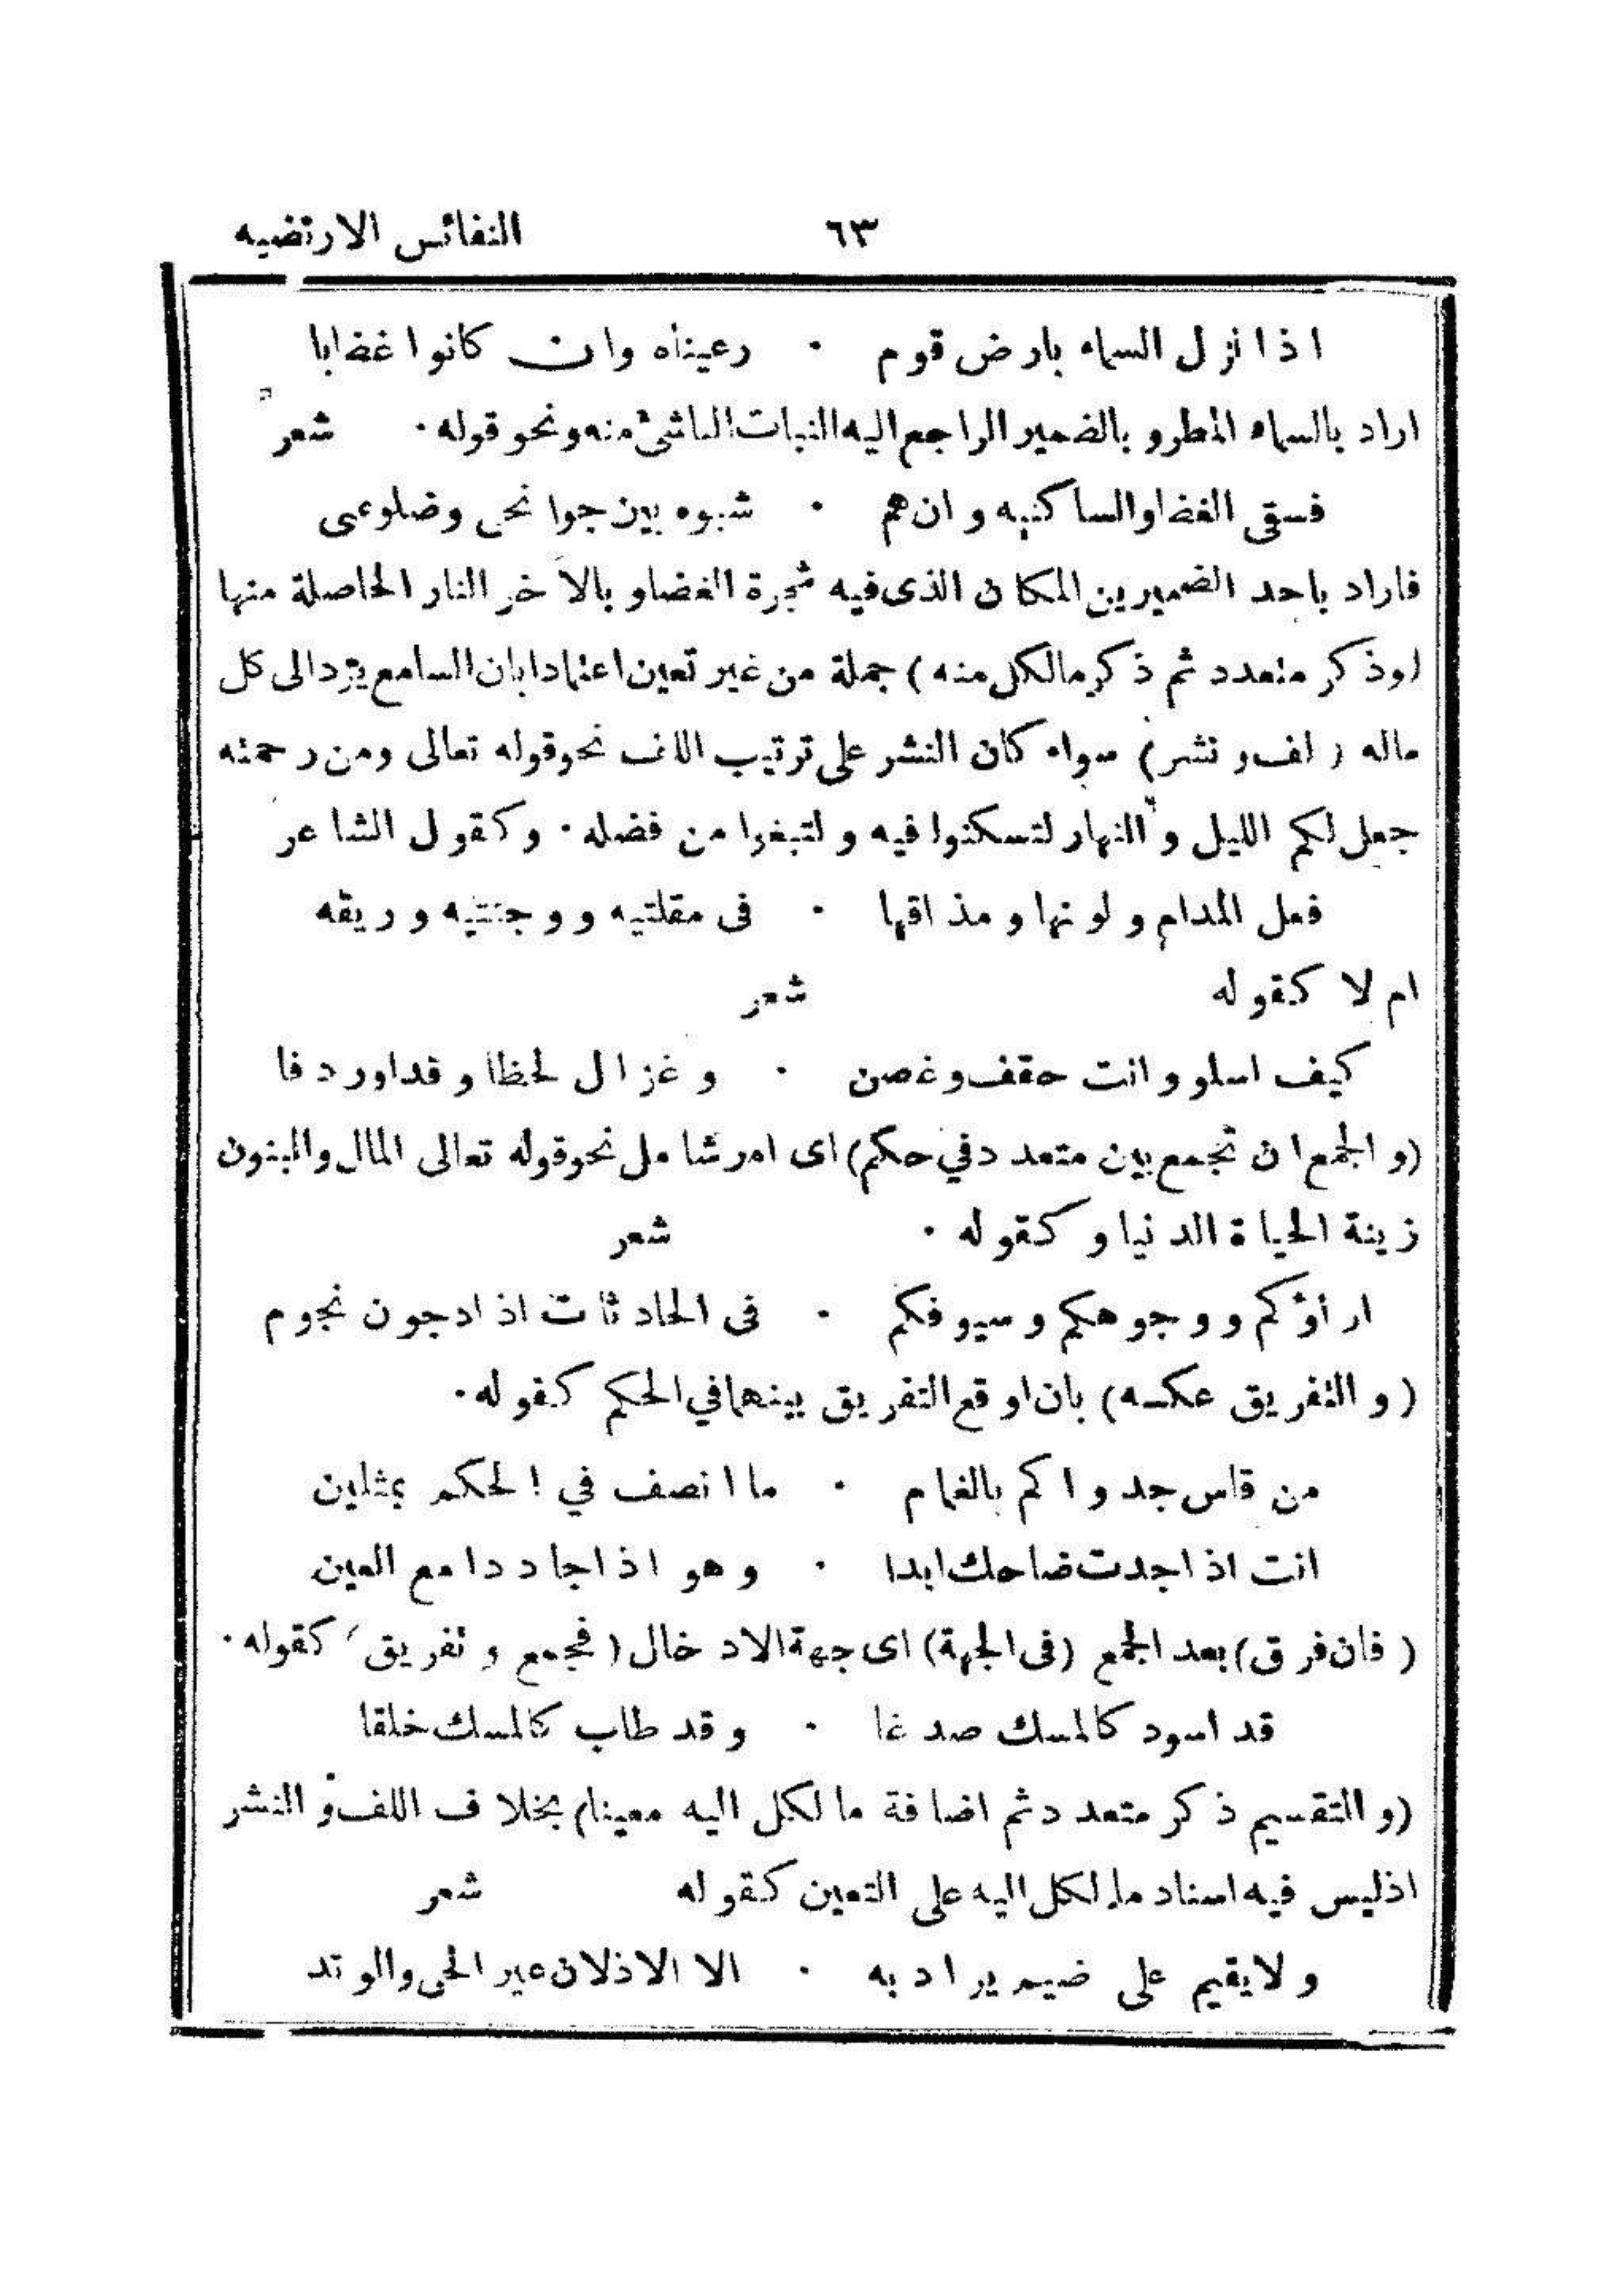 ٦٣ النفائس الارتضيه
اذا نزل السماء بارض قوم · رعيناه وان كانوا غضابا
اراد بالسماء المطر و بالضمير الراجع اليه النبات الناشئ منه ونحو قوله · شعر
فسقى الغضا والساكنيه وان هم · شبوه بين جوانحى وضلوعى
فاراد باحد الضميرين المكان الذى فيه شجرة الغضا و بالآخر النار الحاصلة منها
(وذكر متعدد ثم ذكر مالكل منه) جملة من غير تعين اعتمادا بان السامع يرد الى كل
ماله (لف و نشر) سواء كان النشر على ترتيب اللف نحو قوله تعالى ومن رحمته
جعل لكم الليل والنهار لتسكنوا فيه و لتبتغوا من فضله · وكقول الشاعر
فعل المدام و لونها و مذاقها · فى مقلتيه و وجنتيه و ريقه
ام لا كقوله شعر
كيف اسلو و انت حقف و غصن · و غزال لحظا و قدا و ردفا
(و الجمع ان تجمع بين متعدد في حكم) اى امر شامل نحو قوله تعالى المال والبنون
زينة الحياة الدنيا و كقوله · شعر
ارأؤكم و وجوهكم و سيوفكم · فى الحادثات اذا دجون نجوم
(و التفريق عكسه) بان اوقع التفريق بينهما في الحكم كقوله ·
من قاس جدواكم بالغمام · ما انصف في الحكم بمثلين
انت اذا جدت ضاحك ابدا · و هو اذا جاد دامع العين
(فان فرق) بعد الجمع (فى الجهة) اى جهة الادخال (فجمع و تفريق) كقوله ·
قد اسود كالمسك صدغا · و قد طاب كالمسك خلقا
(و التقسيم ذكر متعدد ثم اضافة ما لكل اليه معينا) بخلاف اللف و النشر
اذليس فيه اسناد ما لكل اليه على التعين كقوله شعر
و لا يقيم على ضيم يراد به · الا الاذلان عير الحى والوتد